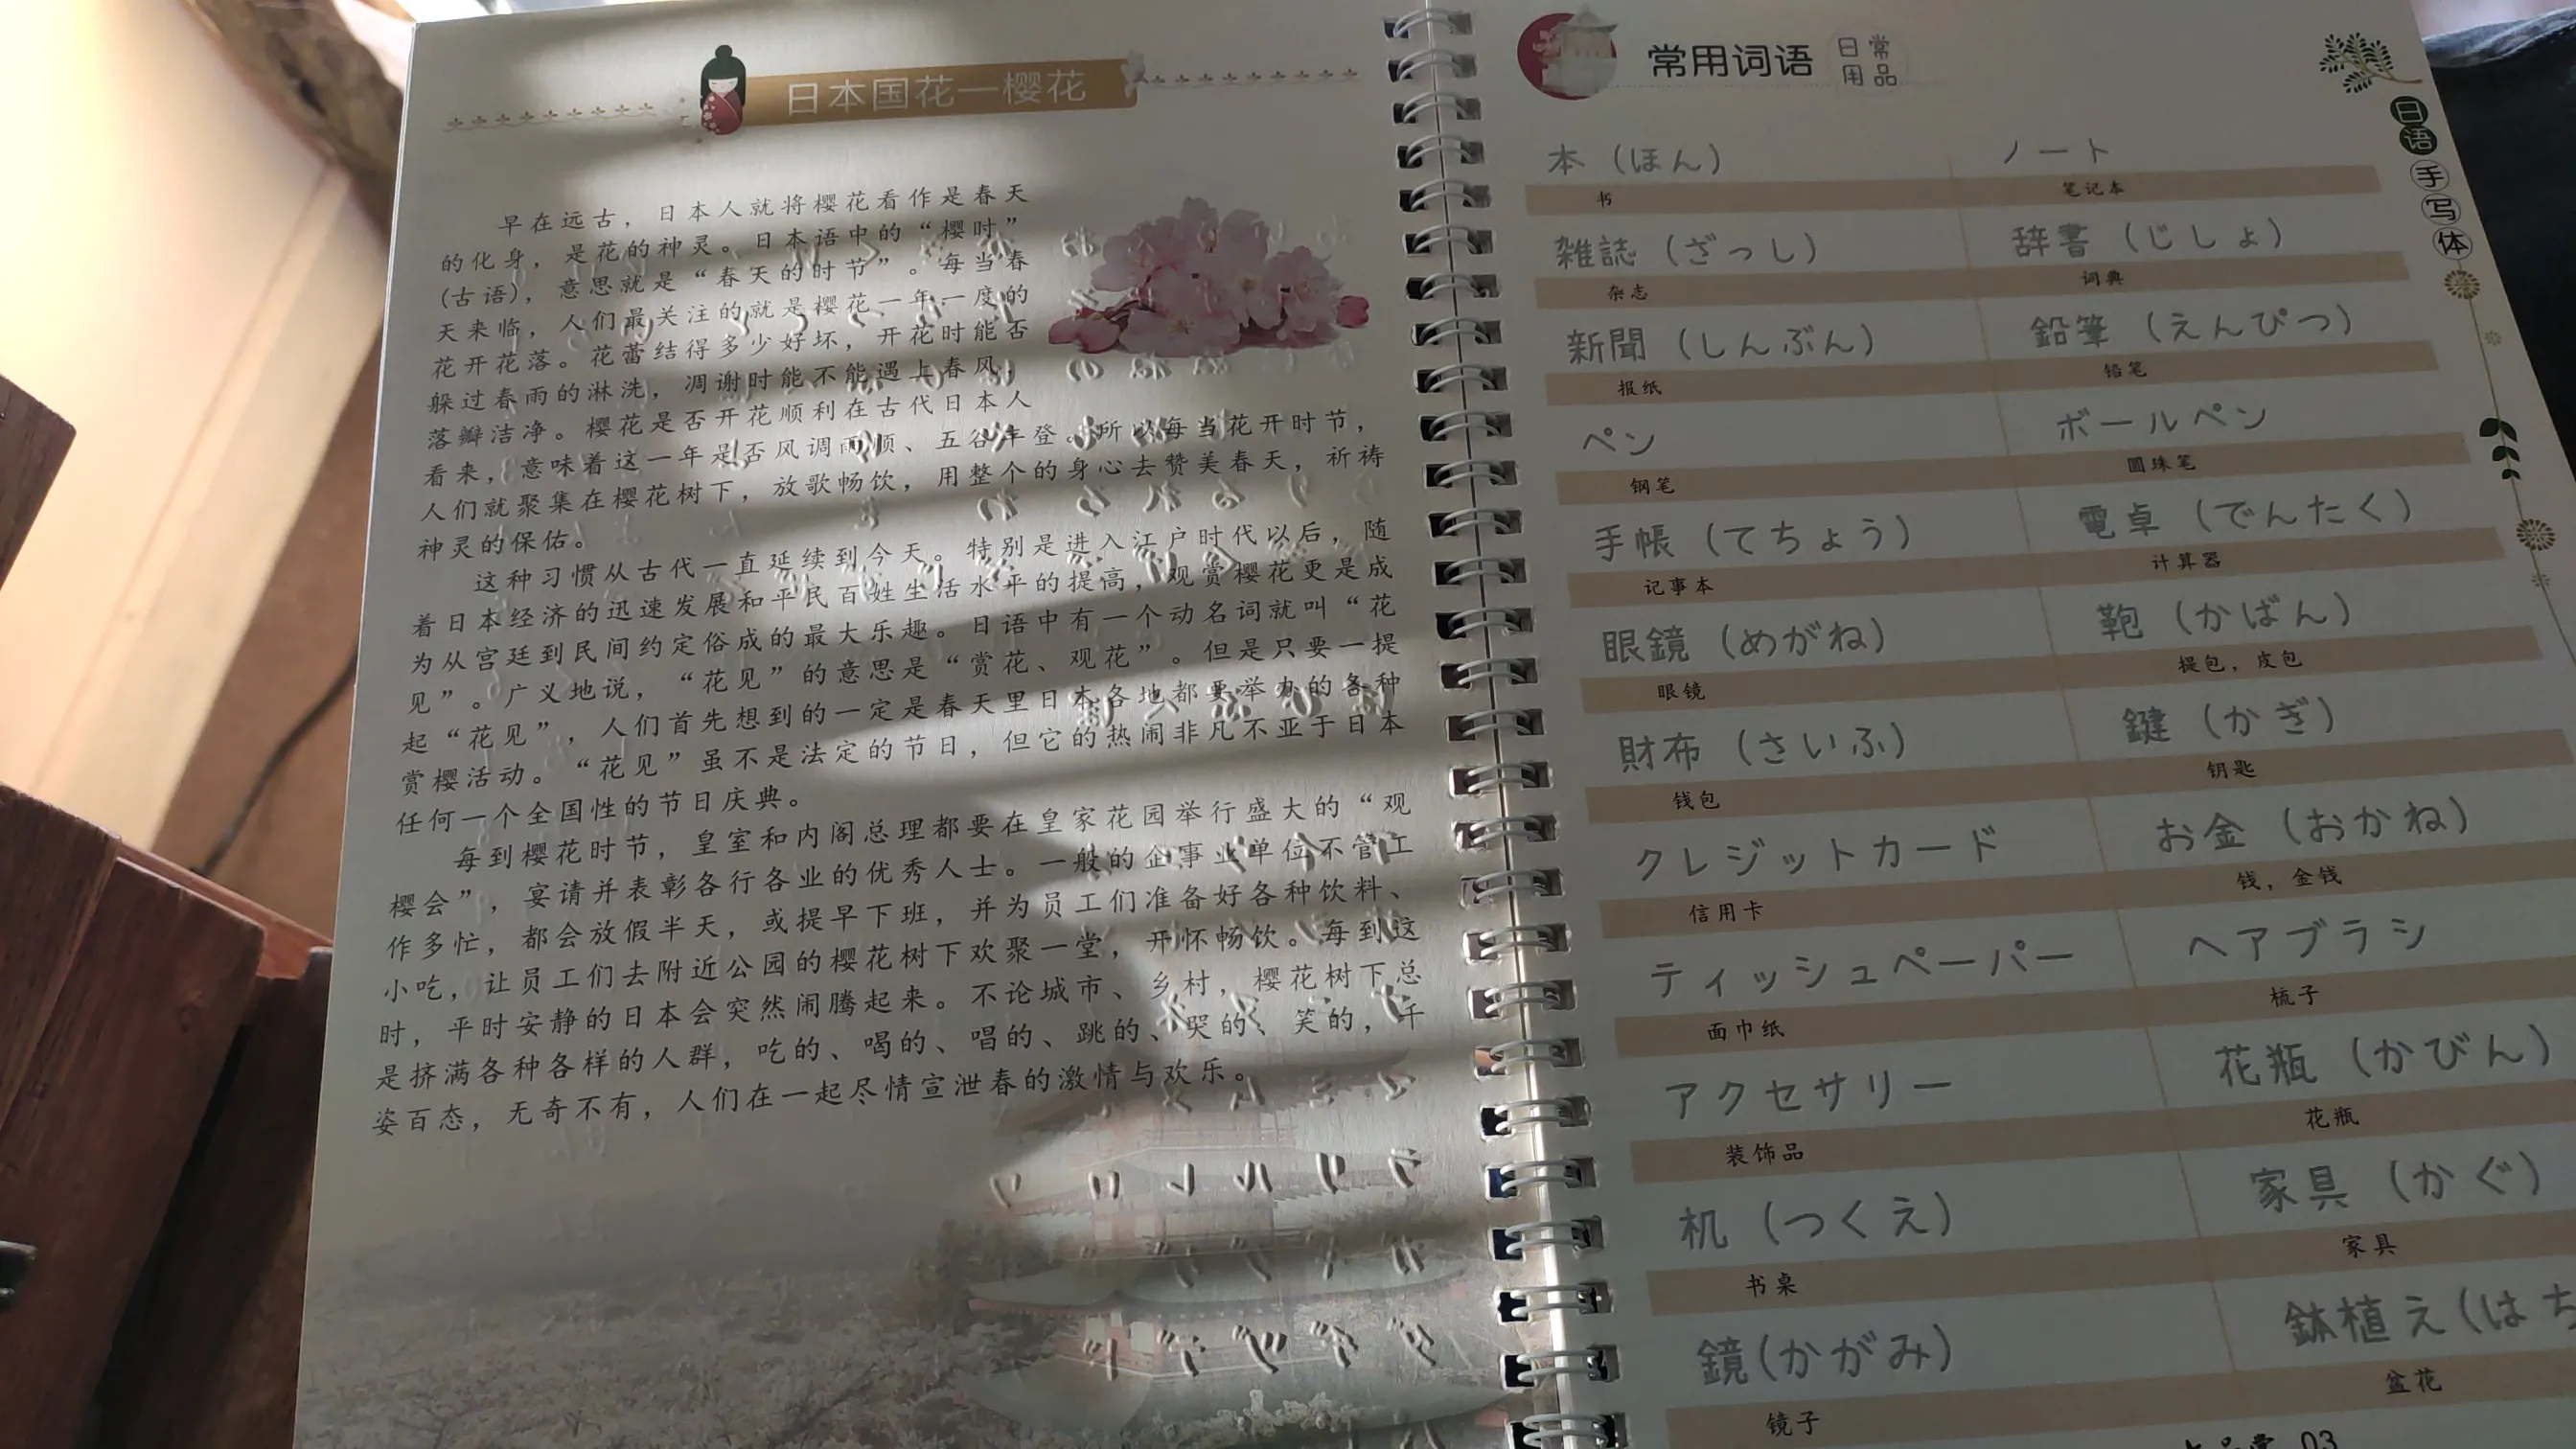 日本国花—樱花
早在远古，日本人就将樱花看作是春天
的化身，是花的神灵。日本语中的“樱时”
(古语)，意思就是“春天的时节”。每当春
天来临，人们最关注的就是樱花一年一度的
花开花落。花蕾结得多少好坏，开花时能否
躲过春雨的淋洗，凋谢时能不能遇上春风，
落瓣洁净。樱花是否开花顺利在古代日本人
看来，意味着这一年是否风调雨顺、五谷丰登。所以每当花开时节，
人们就聚集在樱花树下，放歌畅饮，用整个的身心去赞美春天，祈祷
神灵的保佑。
这种习惯从古代一直延续到今天。特别是进入江户时代以后，随
着日本经济的迅速发展和平民百姓生活水平的提高，观赏樱花更是成
为从宫廷到民间约定俗成的最大乐趣。日语中有一个动名词就叫“花
见”。广义地说，“花见”的意思是“赏花、观花”。但是只要一提
起“花见”，人们首先想到的一定是春天里日本各地都要举办的各种
赏樱活动。“花见”虽不是法定的节日，但它的热闹非凡不亚于日本
任何一个全国性的节日庆典。
每到樱花时节，皇室和内阁总理都要在皇家花园举行盛大的“观
樱会”，宴请并表彰各行各业的优秀人士。一般的企事业单位不管工
作多忙，都会放假半天，或提早下班，并为员工们准备好各种饮料、
小吃，让员工们去附近公园的樱花树下欢聚一堂，开怀畅饮。每到这
时，平时安静的日本会突然闹腾起来。不论城市、乡村，樱花树下总
是挤满各种各样的人群，吃的、喝的、唱的、跳的、哭的、笑的，千
姿百态，无奇不有，人们在一起尽情宣泄春的激情与欢乐。
常用词语 日常用品
本（ほん） ノート
书 笔记本
雑誌（ざっし） 辞書（じしょ）
杂志 词典
新聞（しんぶん） 鉛筆（えんぴつ）
报纸 铅笔
ペン ボールペン
钢笔 圆珠笔
手帳（てちょう） 電卓（でんたく）
记事本 计算器
眼鏡（めがね） 鞄（かばん）
眼镜 提包，皮包
財布（さいふ） 鍵（かぎ）
钱包 钥匙
クレジットカード お金（おかね）
信用卡 钱，金钱
ティッシュペーパー ヘアブラシ
面巾纸 梳子
アクセサリー 花瓶（かびん）
装饰品 花瓶
机（つくえ） 家具（かぐ）
书桌 家具
鏡(かがみ) 鉢植え(はち
镜子 盆花
03
日语手写体